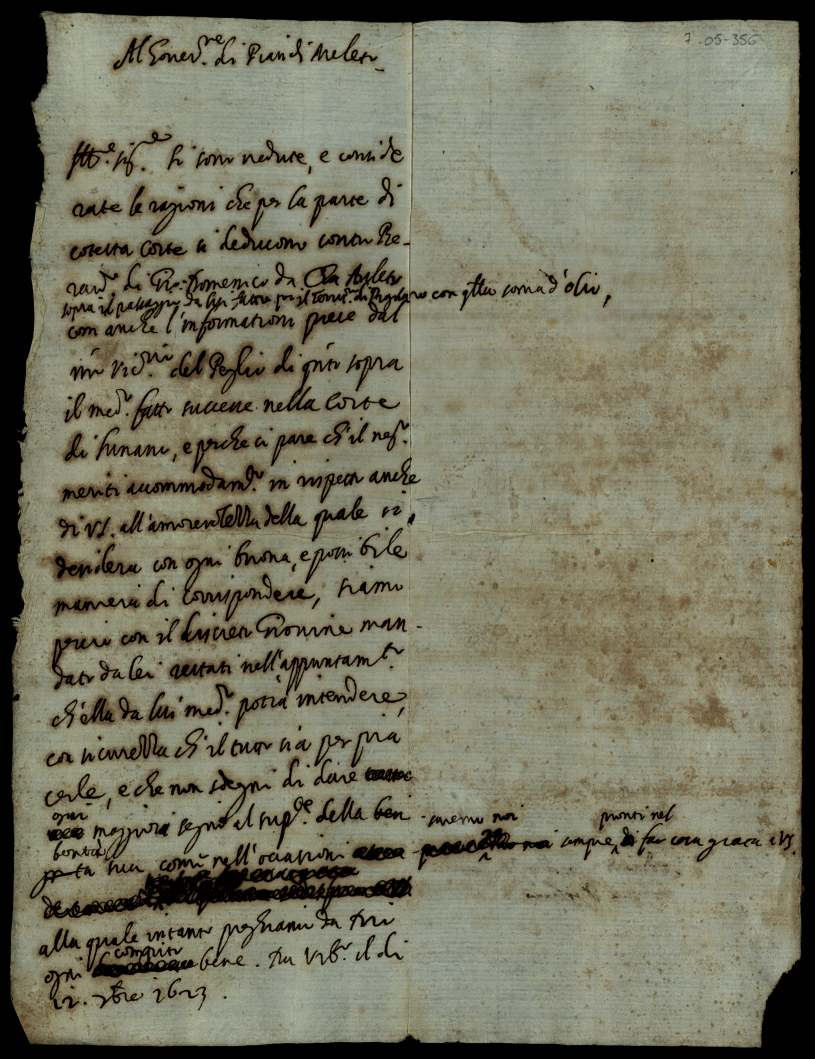 7-05-356
Al Gover.re di Piandi Meleto
Ill.e sig.re Si sono vedute, e conside
rate le ragioni che per la parte di
cotesta Corte si deducono contro Be-
rard.o di Gio: Domenico da
sopra il passaggio da lui fatto per il Terr.o di con q.lla soma d'olio,
com anche l'informationi prese dal
del Peglio di q.nto sopra
il med.o fatto successe nella Corte
di Lunano, e perche ci pare ch'il neg.o
meriti accommodam.to in rispetto anche
di VS. all'amorevolezza della quale si
desidera con ogni buona, e possibile
maniera di corrispondere, siamo
perciò con il discreto Giovine man-
dato da lei restati nell'appuntam.to
ch'ella da lui med.o potrà intendere,
con sicurezza ch'il tutto sia per pia
cerle, e che non sdegni di dare
ogni
maggiore segno al sup.re della
bontà
sua, come nell'occasioni saremo noi sempre pronti nel far cosa grata a VS.
alla quale intanto preghiamo da Dio
ogni compito bene. Da Urb.o il di
12. 1623.